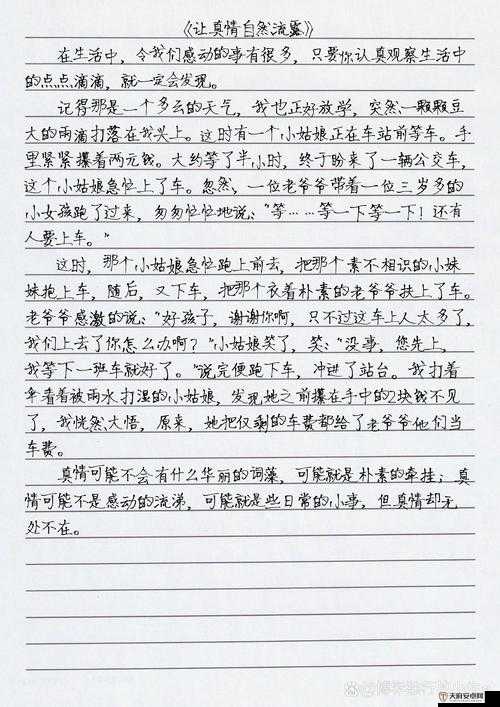 《让真情自然流露》
在生活中，令我们感动的事有很多，只要你认真观察生活中
的点点滴滴，就一定会发现。
记得那是一个多云的天气，我也正好放学，突然一颗颗豆
大的雨滴打落在我头上。这时有一个小姑娘正在车站前等车。手
里紧紧攥着两元钱。大约等了半小时，终于盼来了一辆公交车，
这个小姑娘急忙上了车。忽然，一位老爷爷带着一位三岁多的
小女孩跑了过来，匆匆忙忙地说：“等……等一下等一下！还有
人要上车。”
这时，那个小姑娘急忙跑上前去，把那个素不相识的小妹
妹抱上车，随后，又下车，把那个衣着朴素的老爷爷扶上了车。
老爷爷感激的说：“好孩子，谢谢你啊，只不过这车上人太多了，
我们上去了你怎么办啊？”小姑娘笑了，笑：“没事，您先上，
我等下一班车就好了。”说完便跑下车，冲进了站台。我打着
伞看着被雨水打湿的小姑娘，发现她之前攥在手中的2块钱不见
了，我恍然大悟，原来，她把仅剩的车费都给了老爷爷他们当
车费。
真情可能不会有什么华丽的词藻，可能就是朴素的牵挂；真
情可能不是感动的流涕，可能就是些日常的小事，但真情却无
处不在。
天府安卓网